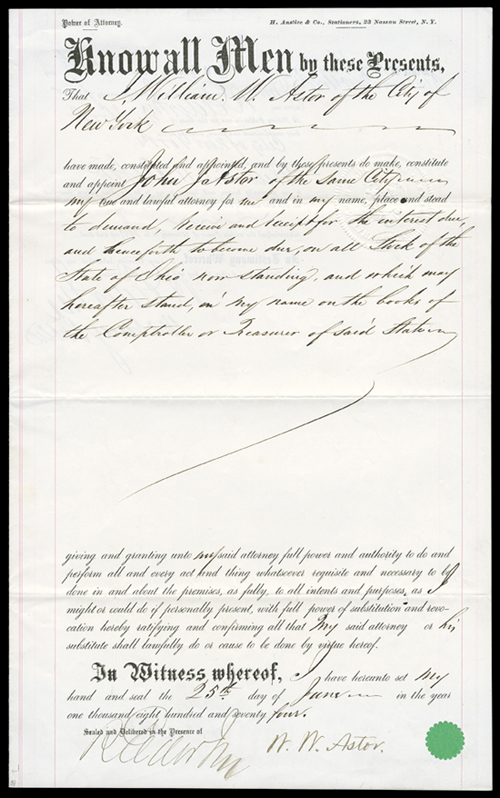 Power of Attorney.
H. Anstice & Co., Stationers, 23 Nassau Street, N. Y.
Know all Men by these Presents,
That I, William W. Astor of the City of
New York
have made, constituted and appointed, and by these presents do make, constitute
and appoint John J. Astor of the same City
my true and lawful attorney for me and in my name, place and stead
to demand, receive and receipt for the interest due,
and henceforth to become due, on all Stock of the
State of Ohio now standing, and which may
hereafter stand, in my name on the books of
the Comptroller or Treasurer of said State
giving and granting unto my said attorney full power and authority to do and
perform all and every act and thing whatsoever requisite and necessary to be
done in and about the premises, as fully, to all intents and purposes, as I
might or could do if personally present, with full power of substitution and revo-
cation hereby ratifying and confirming all that my said attorney or his
substitute shall lawfully do or cause to be done by virtue hereof.
In Witness whereof, I have hereunto set my
hand and seal the 25th day of June in the year
one thousand eight hundred and seventy four.
Sealed and Delivered in the Presence of
W. W. Astor.